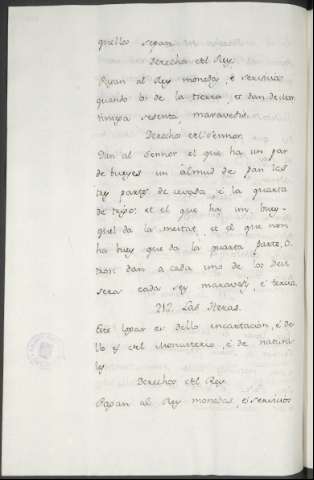 quellos sepan
Derecho del Rey.
Pagan al Rey monedas, é servicios
quando los de la tierra, es dan de
sesenta maravedis.
Derecho del Sennor.
Dan al Sennor el que ha un par
de bueyes un almud de pan las
tres partes de cevada, é la quarta
de trigo: et el que ha un buey
quel da la meitat, et el que non
ha buey que da la quarta parte,
dan a cada uno de los
sera cada sey maravedi, é tercia.
212. Las Heras.
Este logar es dello encartacion, é de
llo es del Monasterio, é de natura
les.
Derechos del Rey
Pagan al Rey monedas, é servicios